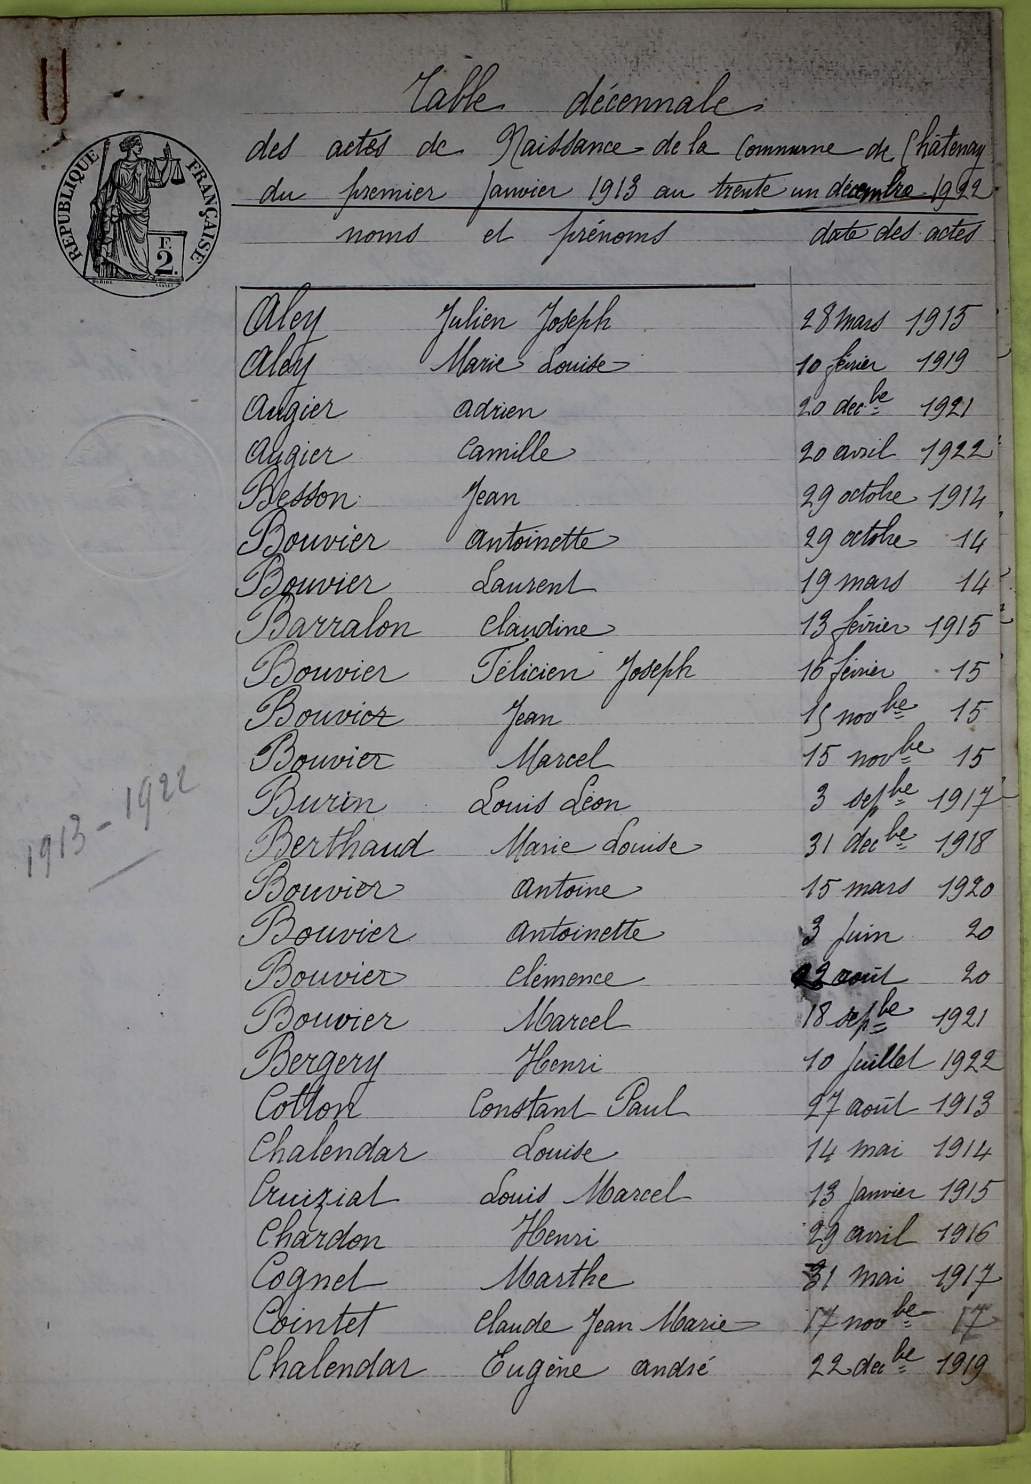 Table décennale
des actes de Naissance de la Commune de Châtenay
du premier Janvier 1913 au trente un décembre 1922
RÉPUBLIQUE FRANÇAISE
F.
2.
noms et prénoms date des actes
Aley Julien Joseph 28 mars 1913
Aley Marie Louise 10 févier 1919
Augier Adrien 20 dec be 1921
Augier Camille 20 avril 1922
Besson Jean 29 octobe 1914
Bouvier Antoinette 29 octobe 14
Bouvier Laurent 19 mars 14
Barralon Claudine 13 févier 1915
Bouvier Félicien Joseph 16 févier 15
Bouvier Jean 15 nov be 15
Bouvier Marcel 15 nov be 15
Burin Louis Léon 3 sep be 1917
1913-1922
Berthaud Marie Louise 31 dec be 1918
Bouvier Antoine 15 mars 1920
Bouvier Antoinette 3 Juin 20
Bouvier Clémence 22 août 20
Bouvier Marcel 18 sep be 1921
Bergery Henri 10 Juillet 1922
Cotton Constant Paul 27 août 1913
Chalendar Louise 14 mai 1914
Cruizial Louis Marcel 13 Janvier 1915
Chardon Henri 29 avril 1916
Cognet Marthe 31 mai 1917
Cointet Claude Jean Marie 17 nov be 17
Chalendar Eugène André 22 dec be 1919